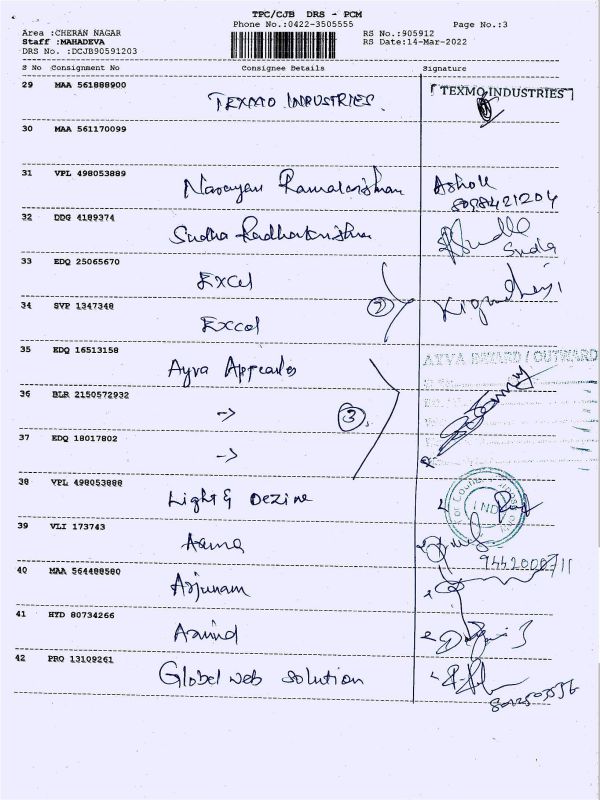 TPC/CJB DRS - PCM
Phone No.:0422-3505555 Page No.:3
Area :CHERAN NAGAR RS No.:905912
Staff :MAHADEVA RS Date:14-Mar-2022
DRS No. :DCJB90591203
S No Consignment No Consignee Details Signature
29 MAA 561888900 TEXMO INDUSTRIES. TEXMO INDUSTRIES
30 MAA 561170099
31 VPL 498053889 Narayan Ramakrishnan Ashok
8098421204
32 DDG 4189374 Sudha Radhakrishna
33 EDQ 25065670 Excel
2
34 SVP 1347348 Excel
35 EDQ 16513158 Ayva
36 BLR 2150572932 ->
3.
37 EDQ 18017802 ->
38 VPL 498053888 Light & Dezine
39 VLI 173743 Aarna
40 MAA 564488580 Arjunam
41 HYD 80734266 Aravind
42 PRO 13109261 Global web solution